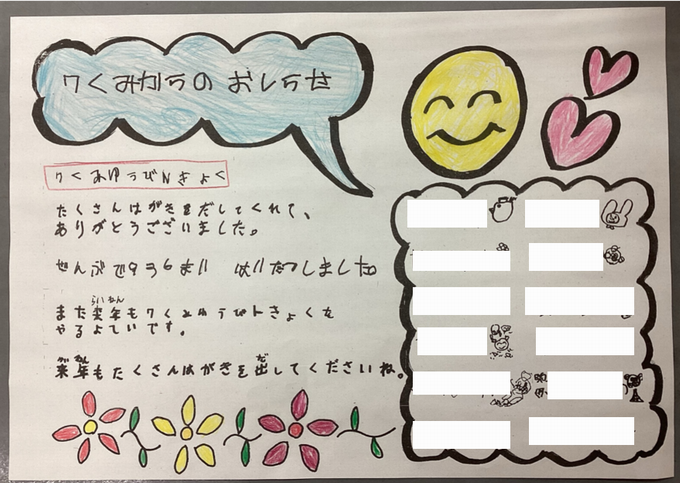 わくみからの おしらせ
わくみゆうびんきょく
たくさんはがきをだしてくれて、
ありがとうございました。
ぜんぶで936まい はいたつしました
また来年もわくみゆうびんきょくを
らいねん
やるよていです。
来年もたくさんはがきを出してくださいね。
らいねん だ